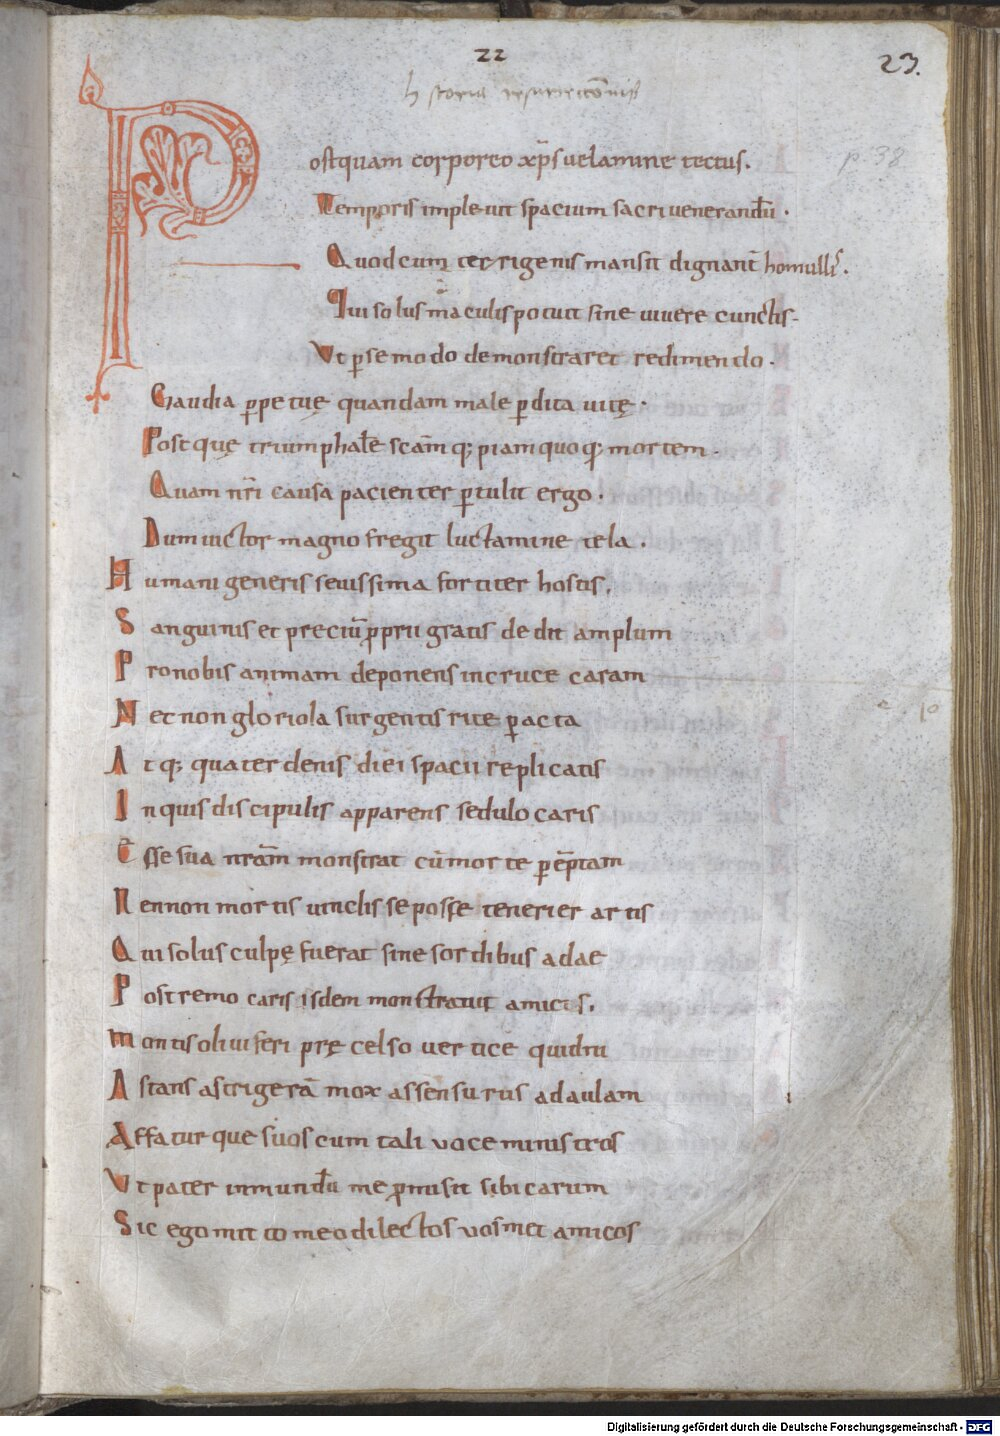 22
23.
historia resurrectionis
p. 38
Postquam corporeo xp̄s uelamine tectus.
Temporis impleuit spacium sacri uenerandū.
Quod cum terrigenis mansit dignant̄ homullis.
Qui solus maculis potuit sine uiuere cunctis.
Vt p̄ se modo demonstraret redimendo.
Gaudia p̄petuę quandam male p̄dita uitę.
Postquę triumphalē scām q; piam quoq; mortem.
Quam nr̄i causa pacienter p̄tulit ergo.
Dum uictor magno fregit luctamine tela.
Humani generis seuissima fortiter hostis.
Sanguinis et preciū proprii gratis dedit amplum
Pro nobis animam deponens in cruce caram
Nec non gloriola surgentis rite p̄acta
Atq; quater denis diei spacii replicatis
In quis discipulis apparens sedulo caris
Esse sua nr̄am monstrat cū morte p̄ēptam
Nennon mortis uinclis se posse tenerier artis
Qui solus culpę fuerat sine sordibus adae
Postremo caris isdem monstratur amicis.
Montis oliuiferi pręcelso uertice quidni
Astans astrigerā mox assensurus ad aulam
Affaturque suos cum tali uoce ministros
Vt pater in mundū me p̄misit sibi carum
Sic ego mitto meo dilectos uosmet amicos
Digitalisierung gefördert durch die Deutsche Forschungsgemeinschaft - DFG